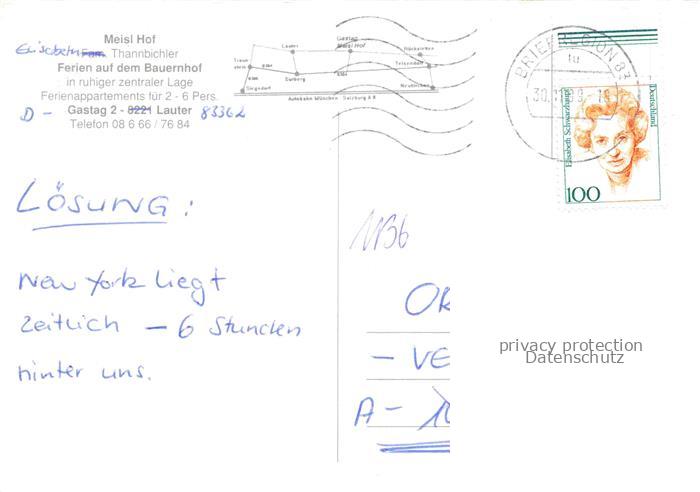 Meisl Hof
Elisabeth Fam. Thannbichler
Ferien auf dem Bauernhof
in ruhiger zentraler Lage
Ferienappartements für 2 - 6 Pers.
D - Gastag 2 - 8221 Lauter 83362
Telefon 08 6 66 / 76 84
Lauter
Gastag
Meisl Hof
Rückstetten
Traunstein
Teisendorf
B304
Surberg
B304
Siegsdorf
Neukirchen
Autobahn München Salzburg A 8
BRIEFREGION 83
Elisabeth Schwarzhaupt
Deutschland
100
LÖSUNG:
New York liegt
zeitlich - 6 Stunden
hinter uns.
- VE
A - 
privacy protection
Datenschutz